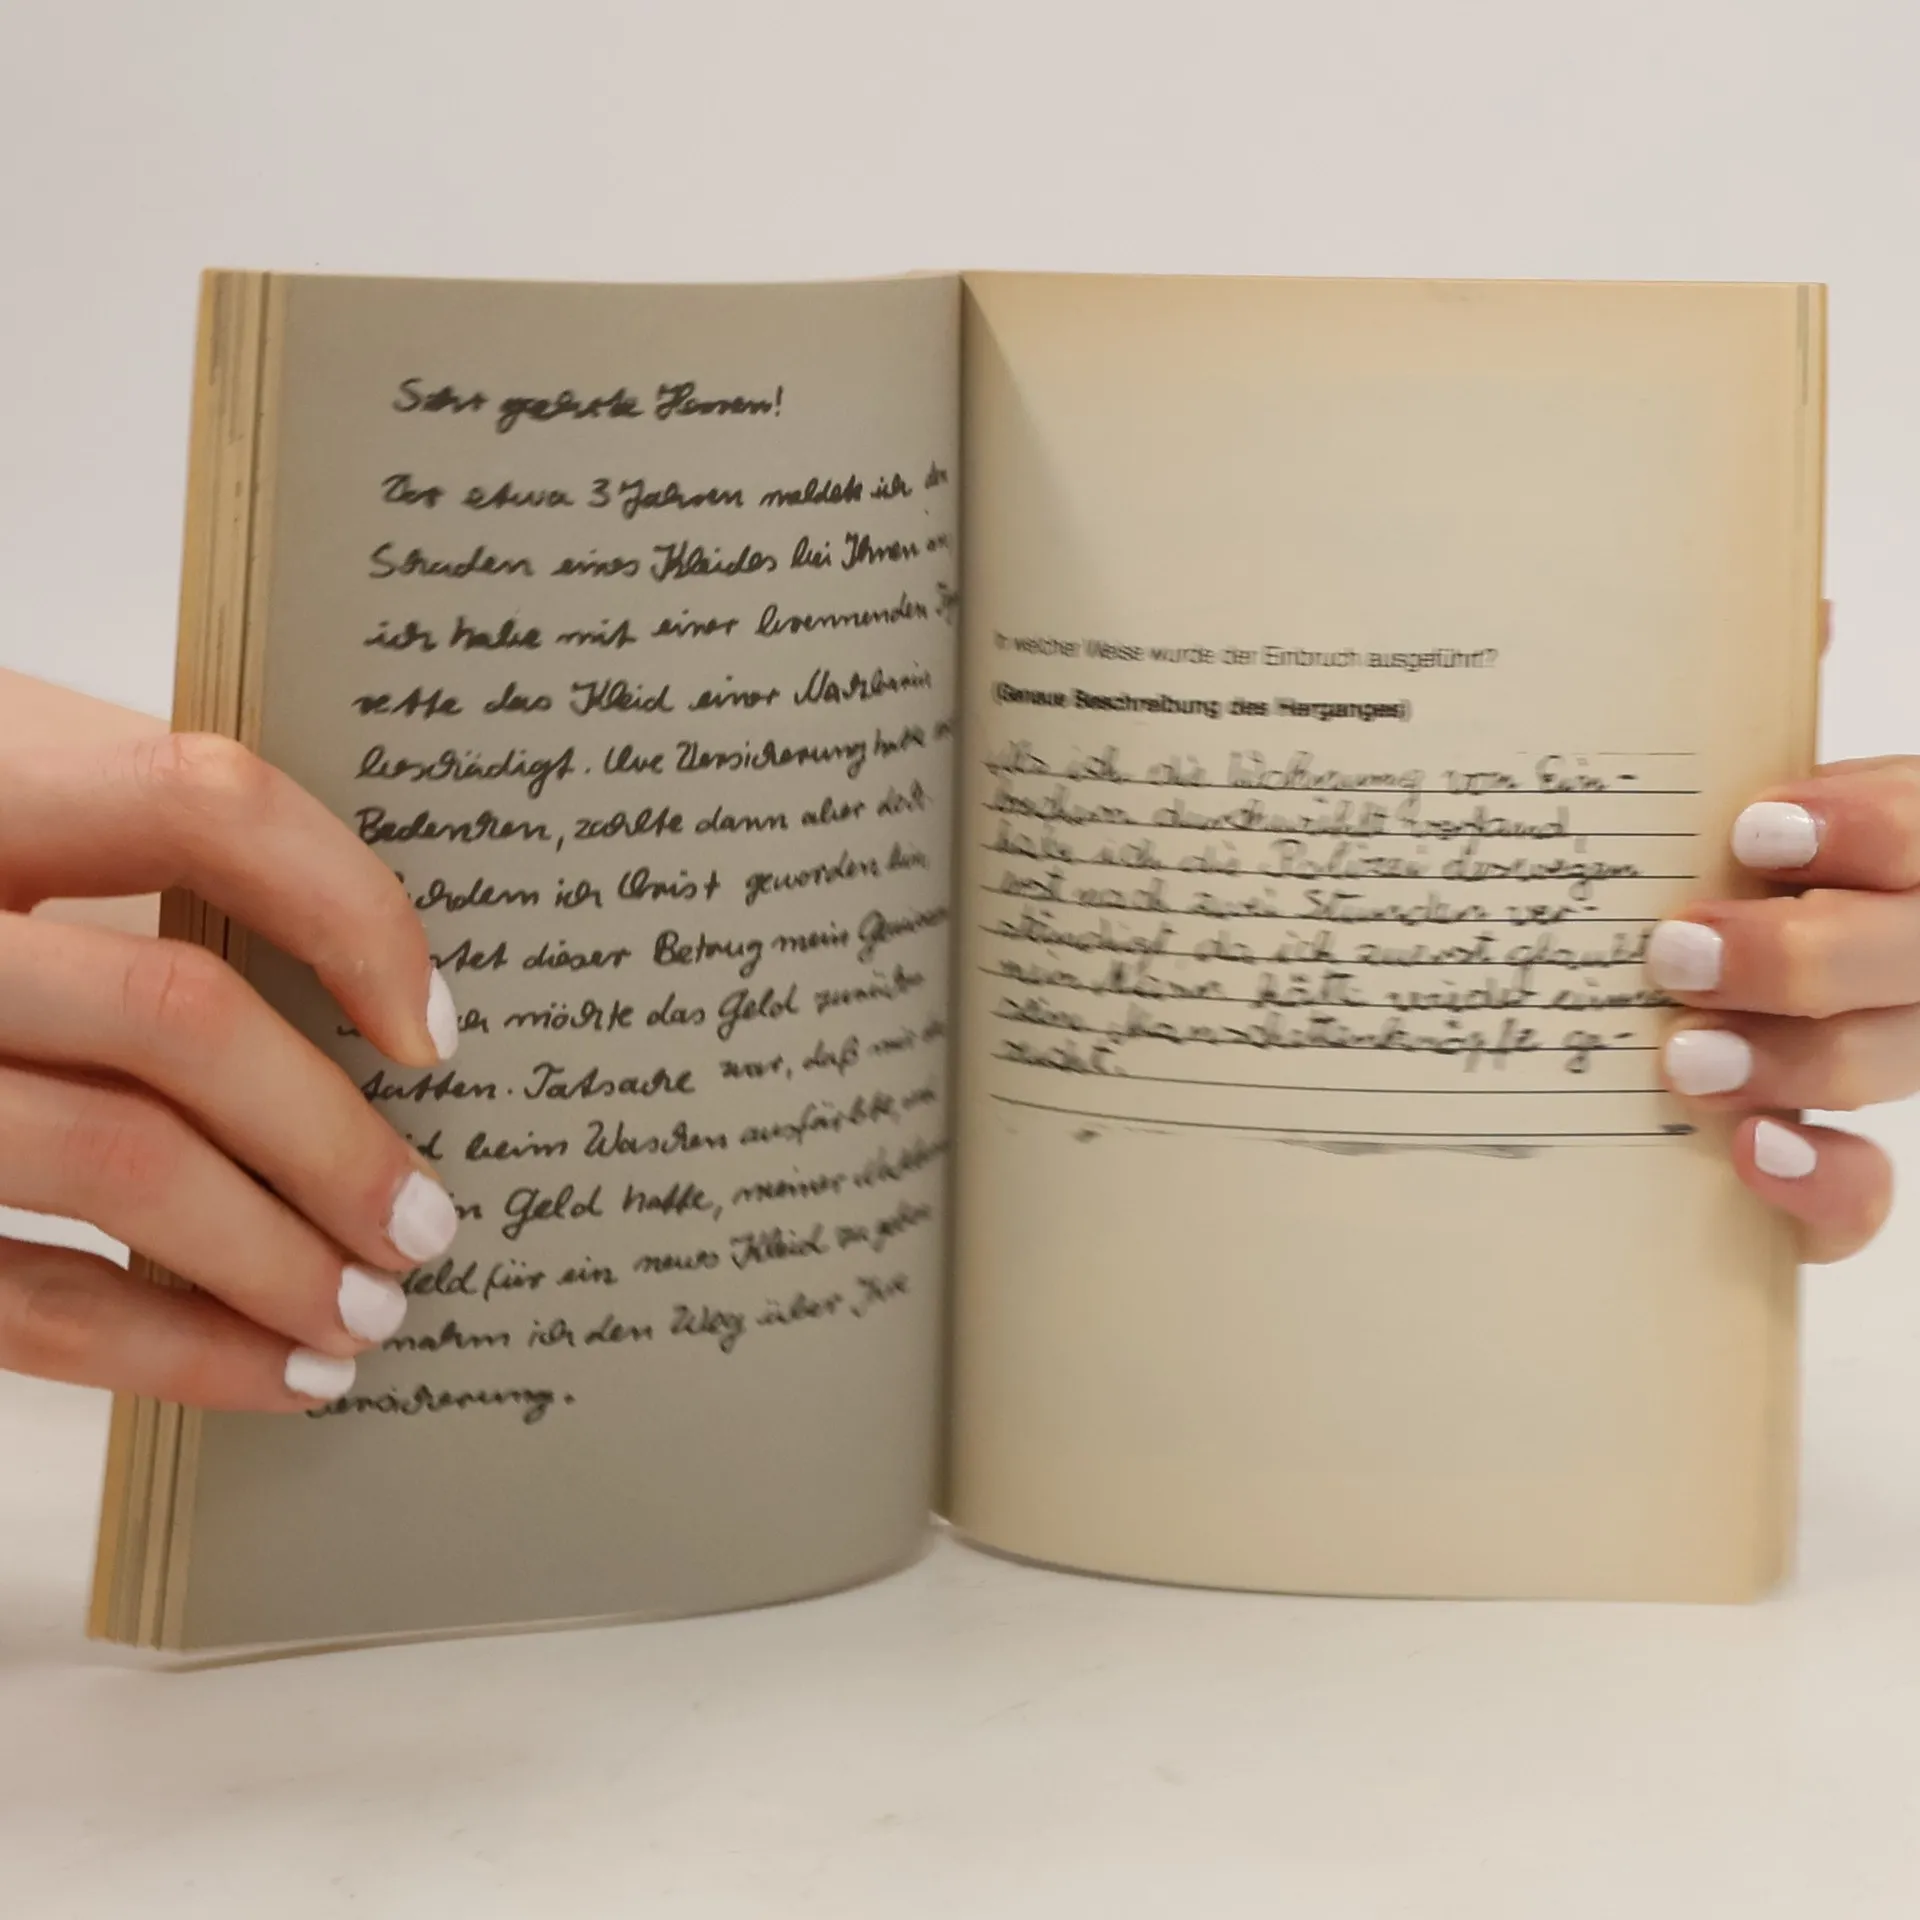 Sehr geehrte Herren!
Vor etwa 3 Jahren meldete ich den
Schaden eines Kleides bei Ihnen an,
ich habe mit einer brennenden
rette das Kleid einer Nachbarin
beschädigt. Die Versicherung hatte
Bedenken, zahlte dann aber doch.
ich Christ geworden bin,
dieser Betrug mein
möchte das Geld zurücker
statten. Tatsache war, daß mir das
beim Waschen ausfärbte,
Geld hatte, meiner
Geld für ein neues Kleid zu geben
nahm ich den Weg über Ihre
Versicherung.
In welcher Weise wurde der Einbruch ausgeführt?
(Genaue Beschreibung des Herganges)
Als ich die Wohnung von Ein-
brechern durchwühlt vorfand,
habe ich die Polizei deswegen
erst nach zwei Stunden ver-
ständigt, da ich zuerst glaubte
mein Mann hätte wieder einmal
seine Manschettenknöpfe ge-
sucht.